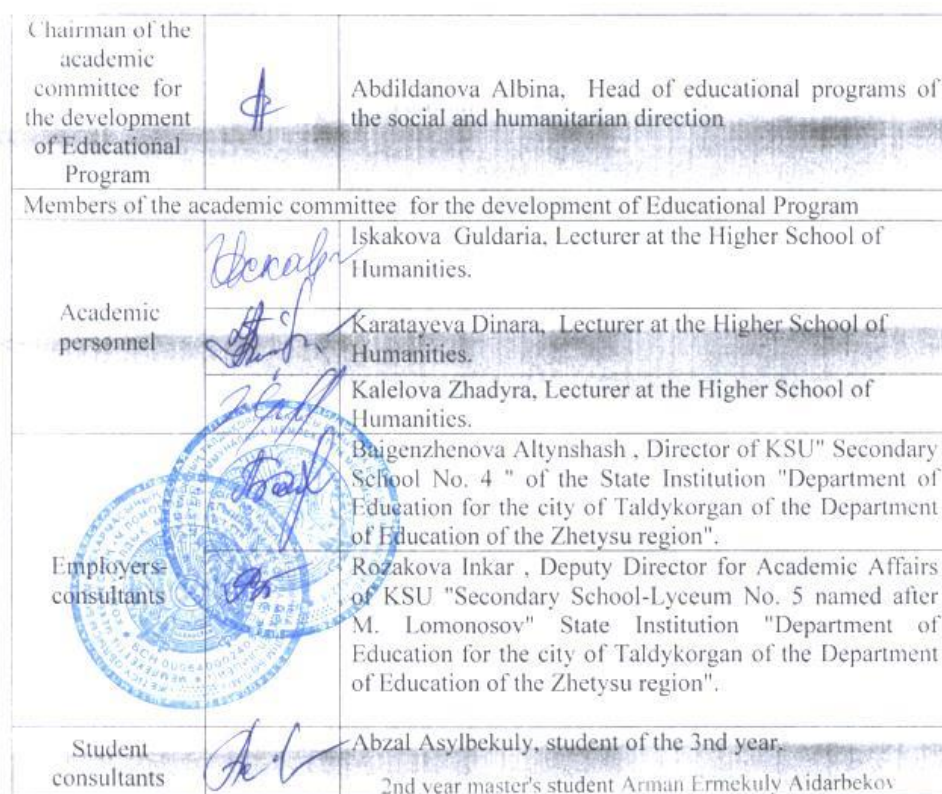 Chairman of the
academic
committee for
the development
of Educational
Program
Abdildanova Albina, Head of educational programs of
the social and humanitarian direction
Members of the academic committee for the development of Educational Program
Academic
personnel
Iskakova Guldaria, Lecturer at the Higher School of
Humanities.
Karatayeva Dinara, Lecturer at the Higher School of
Humanities.
Kalelova Zhadyra, Lecturer at the Higher School of
Humanities.
Employers-
consultants
Baigenzhenova Altynshash , Director of KSU" Secondary
School No. 4 " of the State Institution "Department of
Education for the city of Taldykorgan of the Department
of Education of the Zhetysu region".
Rozakova Inkar , Deputy Director for Academic Affairs
of KSU "Secondary School-Lyceum No. 5 named after
M. Lomonosov" State Institution "Department of
Education for the city of Taldykorgan of the Department
of Education of the Zhetysu region".
Student
consultants
Abzal Asylbekuly, student of the 3nd year.
2nd year master's student Arman Ermekuly Aidarbekov